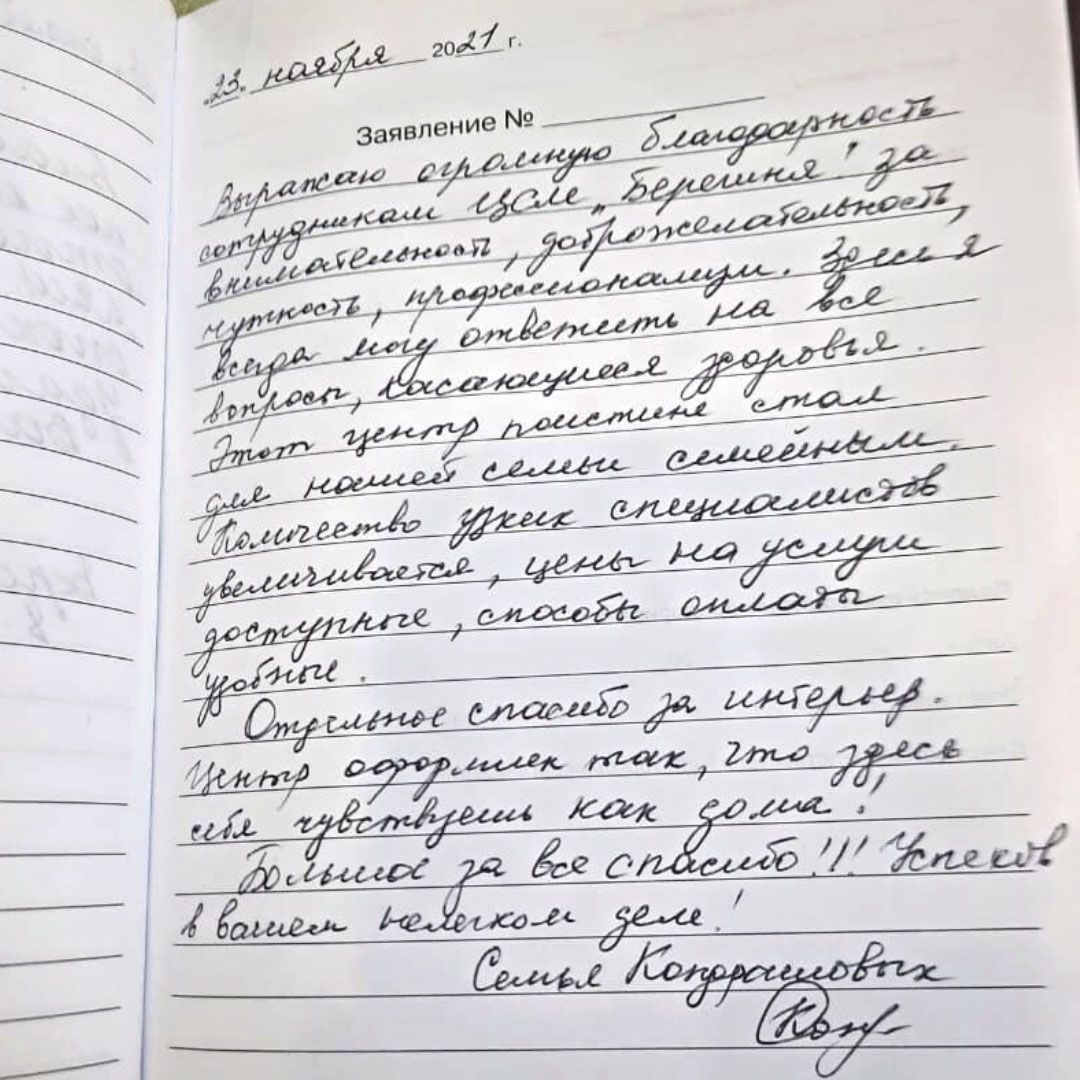 „23" ноября 2021 г.
Заявление № 
Выражаю огромную благодарность
сотрудникам ЦСМ „Берегиня" за
внимательность, доброжелательность,
чуткость, профессионализм. Здесь я
всегда могу ответить на все
вопросы, касающиеся здоровья.
Этот центр поистине стал
для нашей семьи семейным.
Количество узких специалистов
увеличивается, цены на услуги
доступные, способы оплаты
удобные.
Отдельное спасибо за интерьер.
Центр оформлен так, что здесь
себя чувствуешь как дома!
Большое за все спасибо!!! Успехов
в вашем нелегком деле!
Семья Кондрашовых